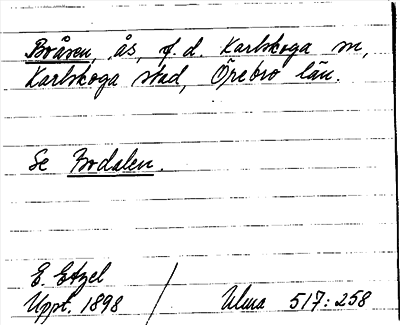 Bråsen, ås, f. d. Karlskoga sn,
Karlskoga stad, Örebro län.
Se Bodalen.
E. Etzel
Uppt. 1898 / Ulma 517:258